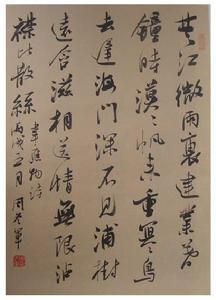 楚江微雨裏建業暮
鐘時漠々帆來重冥々鳥
去遲海門深不見浦樹
遠含滋相送情無限沾
襟比散絲
韋應物詩
丙戌 月周 軍